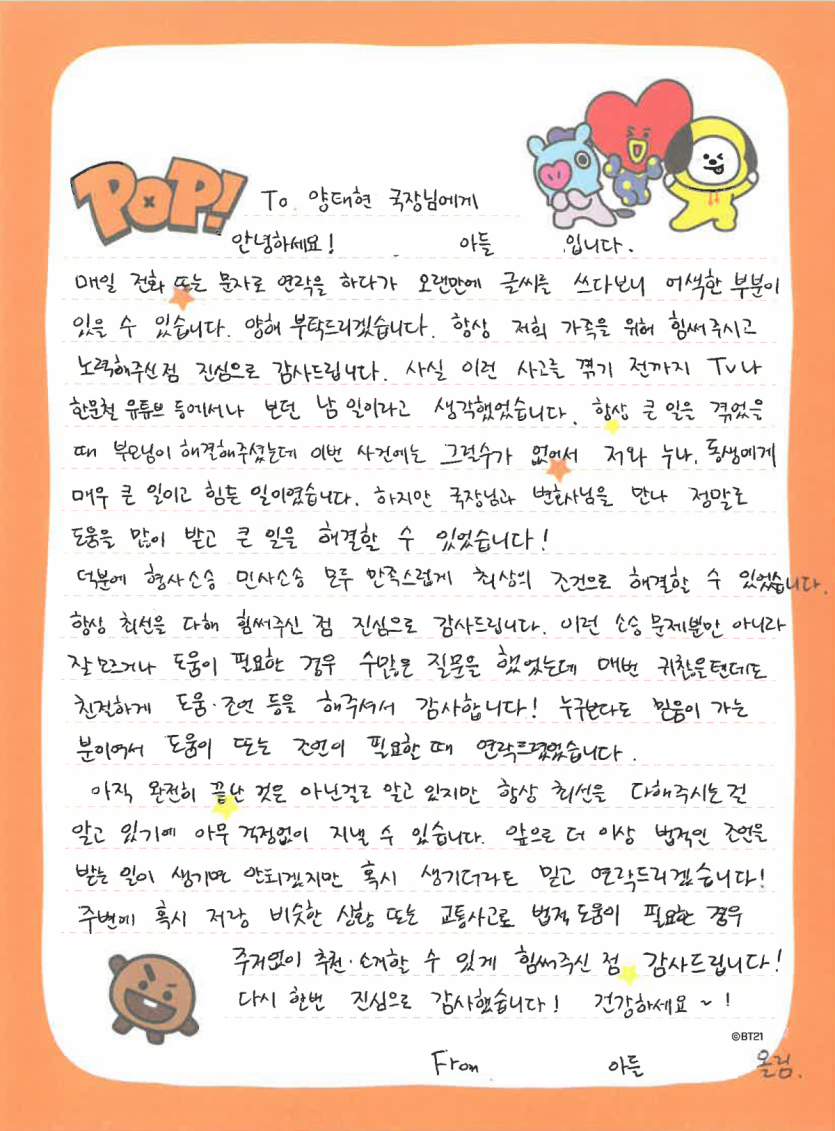 POP!
To. 양태현 국장님에게
안녕하세요! 아들 입니다.
매일 전화 또는 문자로 연락을 하다가 오랜만에 글씨를 쓰다보니 어색한 부분이
있을 수 있습니다. 양해 부탁드리겠습니다. 항상 저희 가족을 위해 힘써주시고
노력해주신점 진심으로 감사드립니다. 사실 이런 사고를 겪기 전까지 Tv나
한문철 유튜브 등에서나 보던 남 일이라고 생각했었습니다. 항상 큰 일을 겪었을
때 부모님이 해결해주셨는데 이번 사건에는 그럴수가 없어서 저와 누나, 동생에게
매우 큰 일이고 힘든 일이였습니다. 하지만 국장님과 변호사님을 만나 정말로
도움을 많이 받고 큰 일을 해결할 수 있었습니다!
덕분에 형사소송 민사소송 모두 만족스럽게 최상의 조건으로 해결할 수 있었습니다.
항상 최선을 다해 힘써주신 점 진심으로 감사드립니다. 이런 소송 문제뿐만 아니라
잘모르거나 도움이 필요한 경우 수많은 질문을 했었는데 매번 귀찮을텐데도
친절하게 도움·조언 등을 해주셔서 감사합니다! 누구보다도 믿음이 가는
분이여서 도움이 또는 조언이 필요할 때 연락드렸었습니다.
아직 완전히 끝난 것은 아닌걸로 알고 있지만 항상 최선을 다해주시는걸
알고 있기에 아무 걱정없이 지낼 수 있습니다. 앞으로 더 이상 법적인 조언을
받는 일이 생기면 안되겠지만 혹시 생기더라도 믿고 연락드리겠습니다!
주변에 혹시 저랑 비슷한 상황 또는 교통사고로 법적 도움이 필요한 경우
주저없이 추천·소개할 수 있게 힘써주신 점 감사드립니다!
다시 한번 진심으로 감사했습니다! 건강하세요~!
©BT21
From 아들 올림.